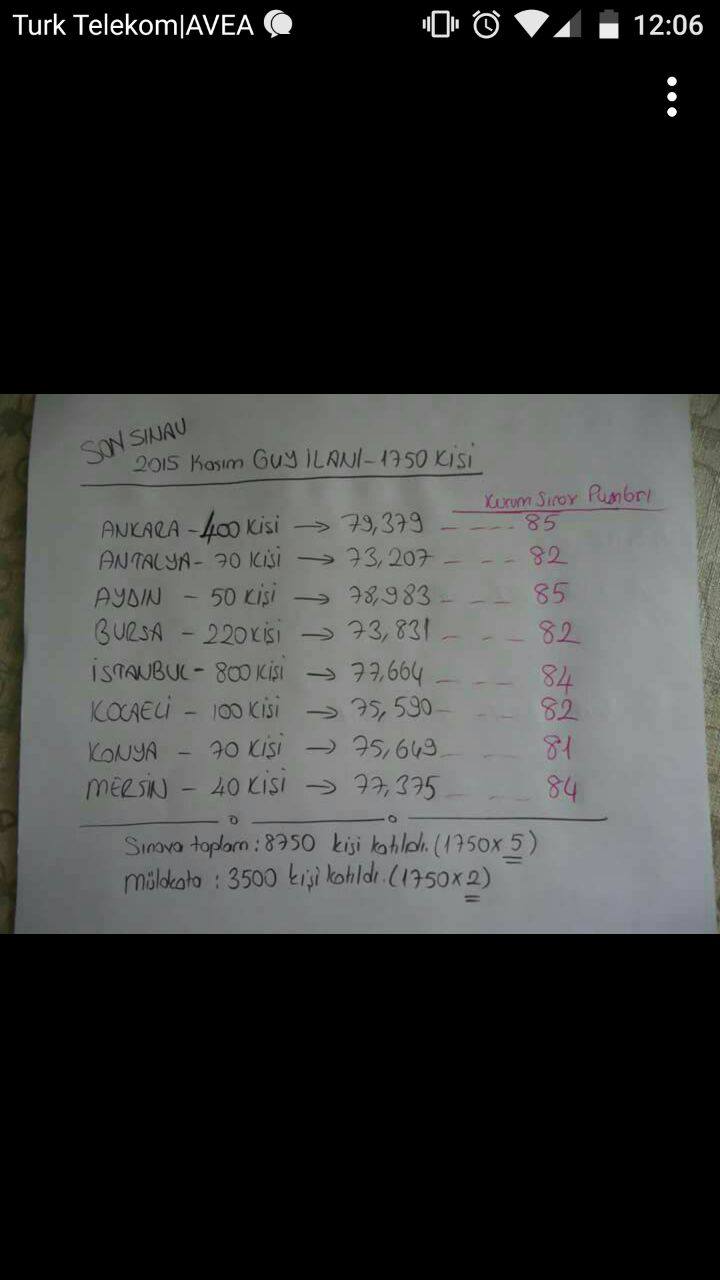 Turk Telekom|AVEA 12:06
SON SINAV
2015 Kasım GUY İLANI-1750 Kişi
Kurum Sınav Puanları
ANKARA - 400 Kişi → 79,379 - - - - 85
ANTALYA - 70 Kişi → 73,207 - - - 82
AYDIN - 50 Kişi → 78,983 - - - 85
BURSA - 220 Kişi → 73,831 - - - 82
İSTANBUL - 800 Kişi → 77,664 - - - 84
KOCAELİ - 100 Kişi → 75,590 - - - 82
KONYA - 70 Kişi → 75,649 - - - 81
MERSİN - 40 Kişi → 77,375 - - - 84
Sınava toplam : 8750 kişi katıldı. (1750x5)
Mülakata : 3500 kişi katıldı. (1750x2)